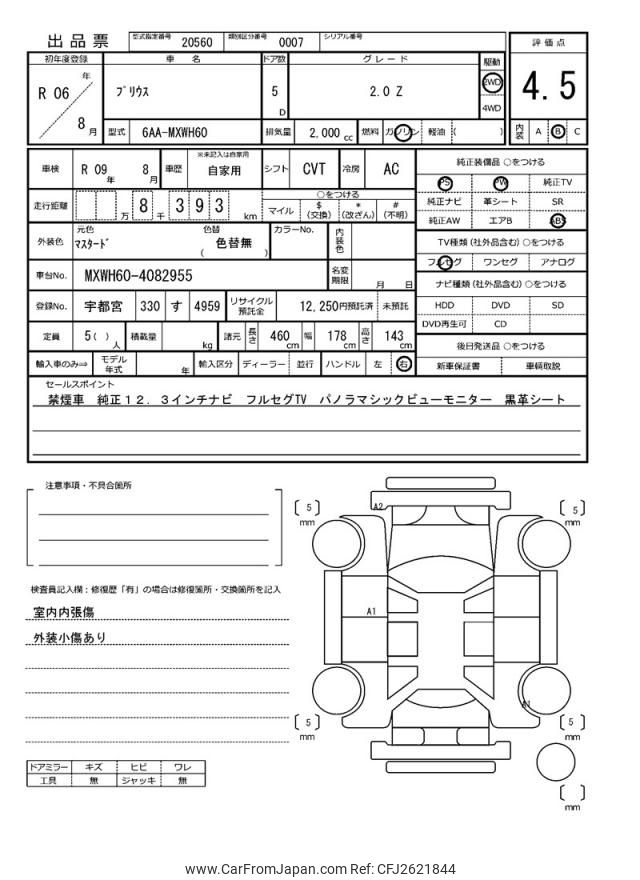 出品票 型式指定番号 20560 類別区分番号 0007 シリアル番号
初年度登録 車名 ドア数 グレード 駆動 評価点
R 06 年 8 月 プリウス 5 D 2.0 Z 2WD 4WD 4.5
型式 6AA-MXWH60 排気量 2,000 cc 燃料 ガソリン 軽油 ( ) 内装 A B C
車検 R 09 年 8 月 車歴 ※未記入は自家用 自家用 シフト CVT 冷房 AC
純正装備品 ○をつける
PS PW 純正TV
純正ナビ 革シート SR
純正AW エアB ABS
走行距離 万 8 千 3 9 3 km
○をつける
マイル $ (交換) * (改ざん) # (不明)
外装色 元色 マスタード 色替 ( 色替無 ) カラーNo. 内装色
TV種類 (社外品含む) ○をつける
フルセグ ワンセグ アナログ
車台No. MXWH60-4082955 名変期限 月 日
ナビ種類 (社外品含む) ○をつける
HDD DVD SD
DVD再生可 CD
登録No. 宇都宮 330 す 4959 リサイクル預託金 12,250円預託済 未預託
定員 5( ) 人 積載量 kg 諸元 長さ 460 cm 幅 178 cm 高さ 143 cm
後日発送品 ○をつける
新車保証書 車輌取説
輸入車のみ⇒ モデル年式 年 輸入区分 ディーラー 並行 ハンドル 左 右
セールスポイント
禁煙車 純正12.3インチナビ フルセグTV パノラマシックビューモニター 黒革シート
注意事項・不具合箇所
検査員記入欄:修復歴「有」の場合は修復箇所・交換箇所を記入
室内内張傷
外装小傷あり
ドアミラー キズ ヒビ ワレ
工具 無 ジャッキ 無
[ 5 ] mm
A2
[ 5 ] mm
A1
A1
[ 5 ] mm
[ 5 ] mm
[ ] mm
www.CarFromJapan.com Ref: CFJ2621844